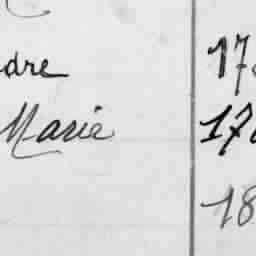 dre 17
Marie 17
18